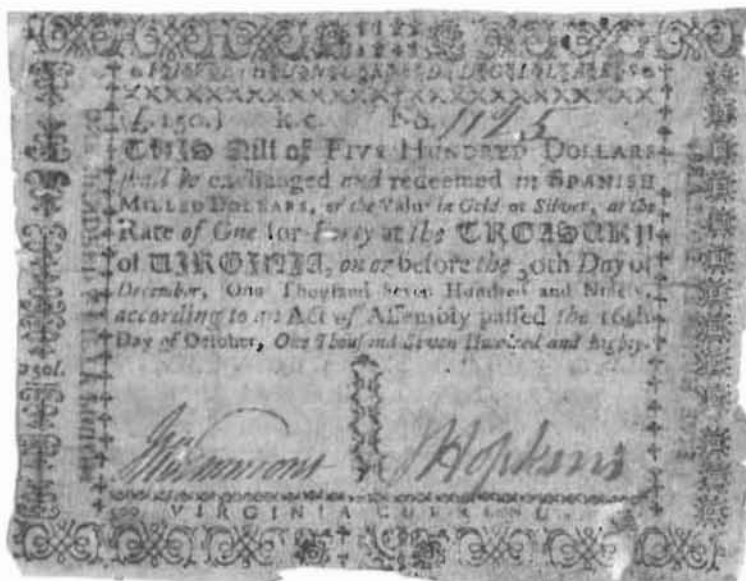 FIVE HUNDRED DOLLARS
(£.150.) No. 1125
THIS Bill of FIVE HUNDRED DOLLARS
shall be exchanged and redeemed in SPANISH
MILLED DOLLARS, or the Value in Gold or Silver, at the
Rate of One for Forty at the TREASURY
of VIRGINIA, on or before the 30th Day of
December, One Thousand Seven Hundred and Ninety,
according to an Act of Assembly passed the 16th
Day of October, One Thousand Seven Hundred and Eighty.
J Hopkins
VIRGINIA CURRENCY